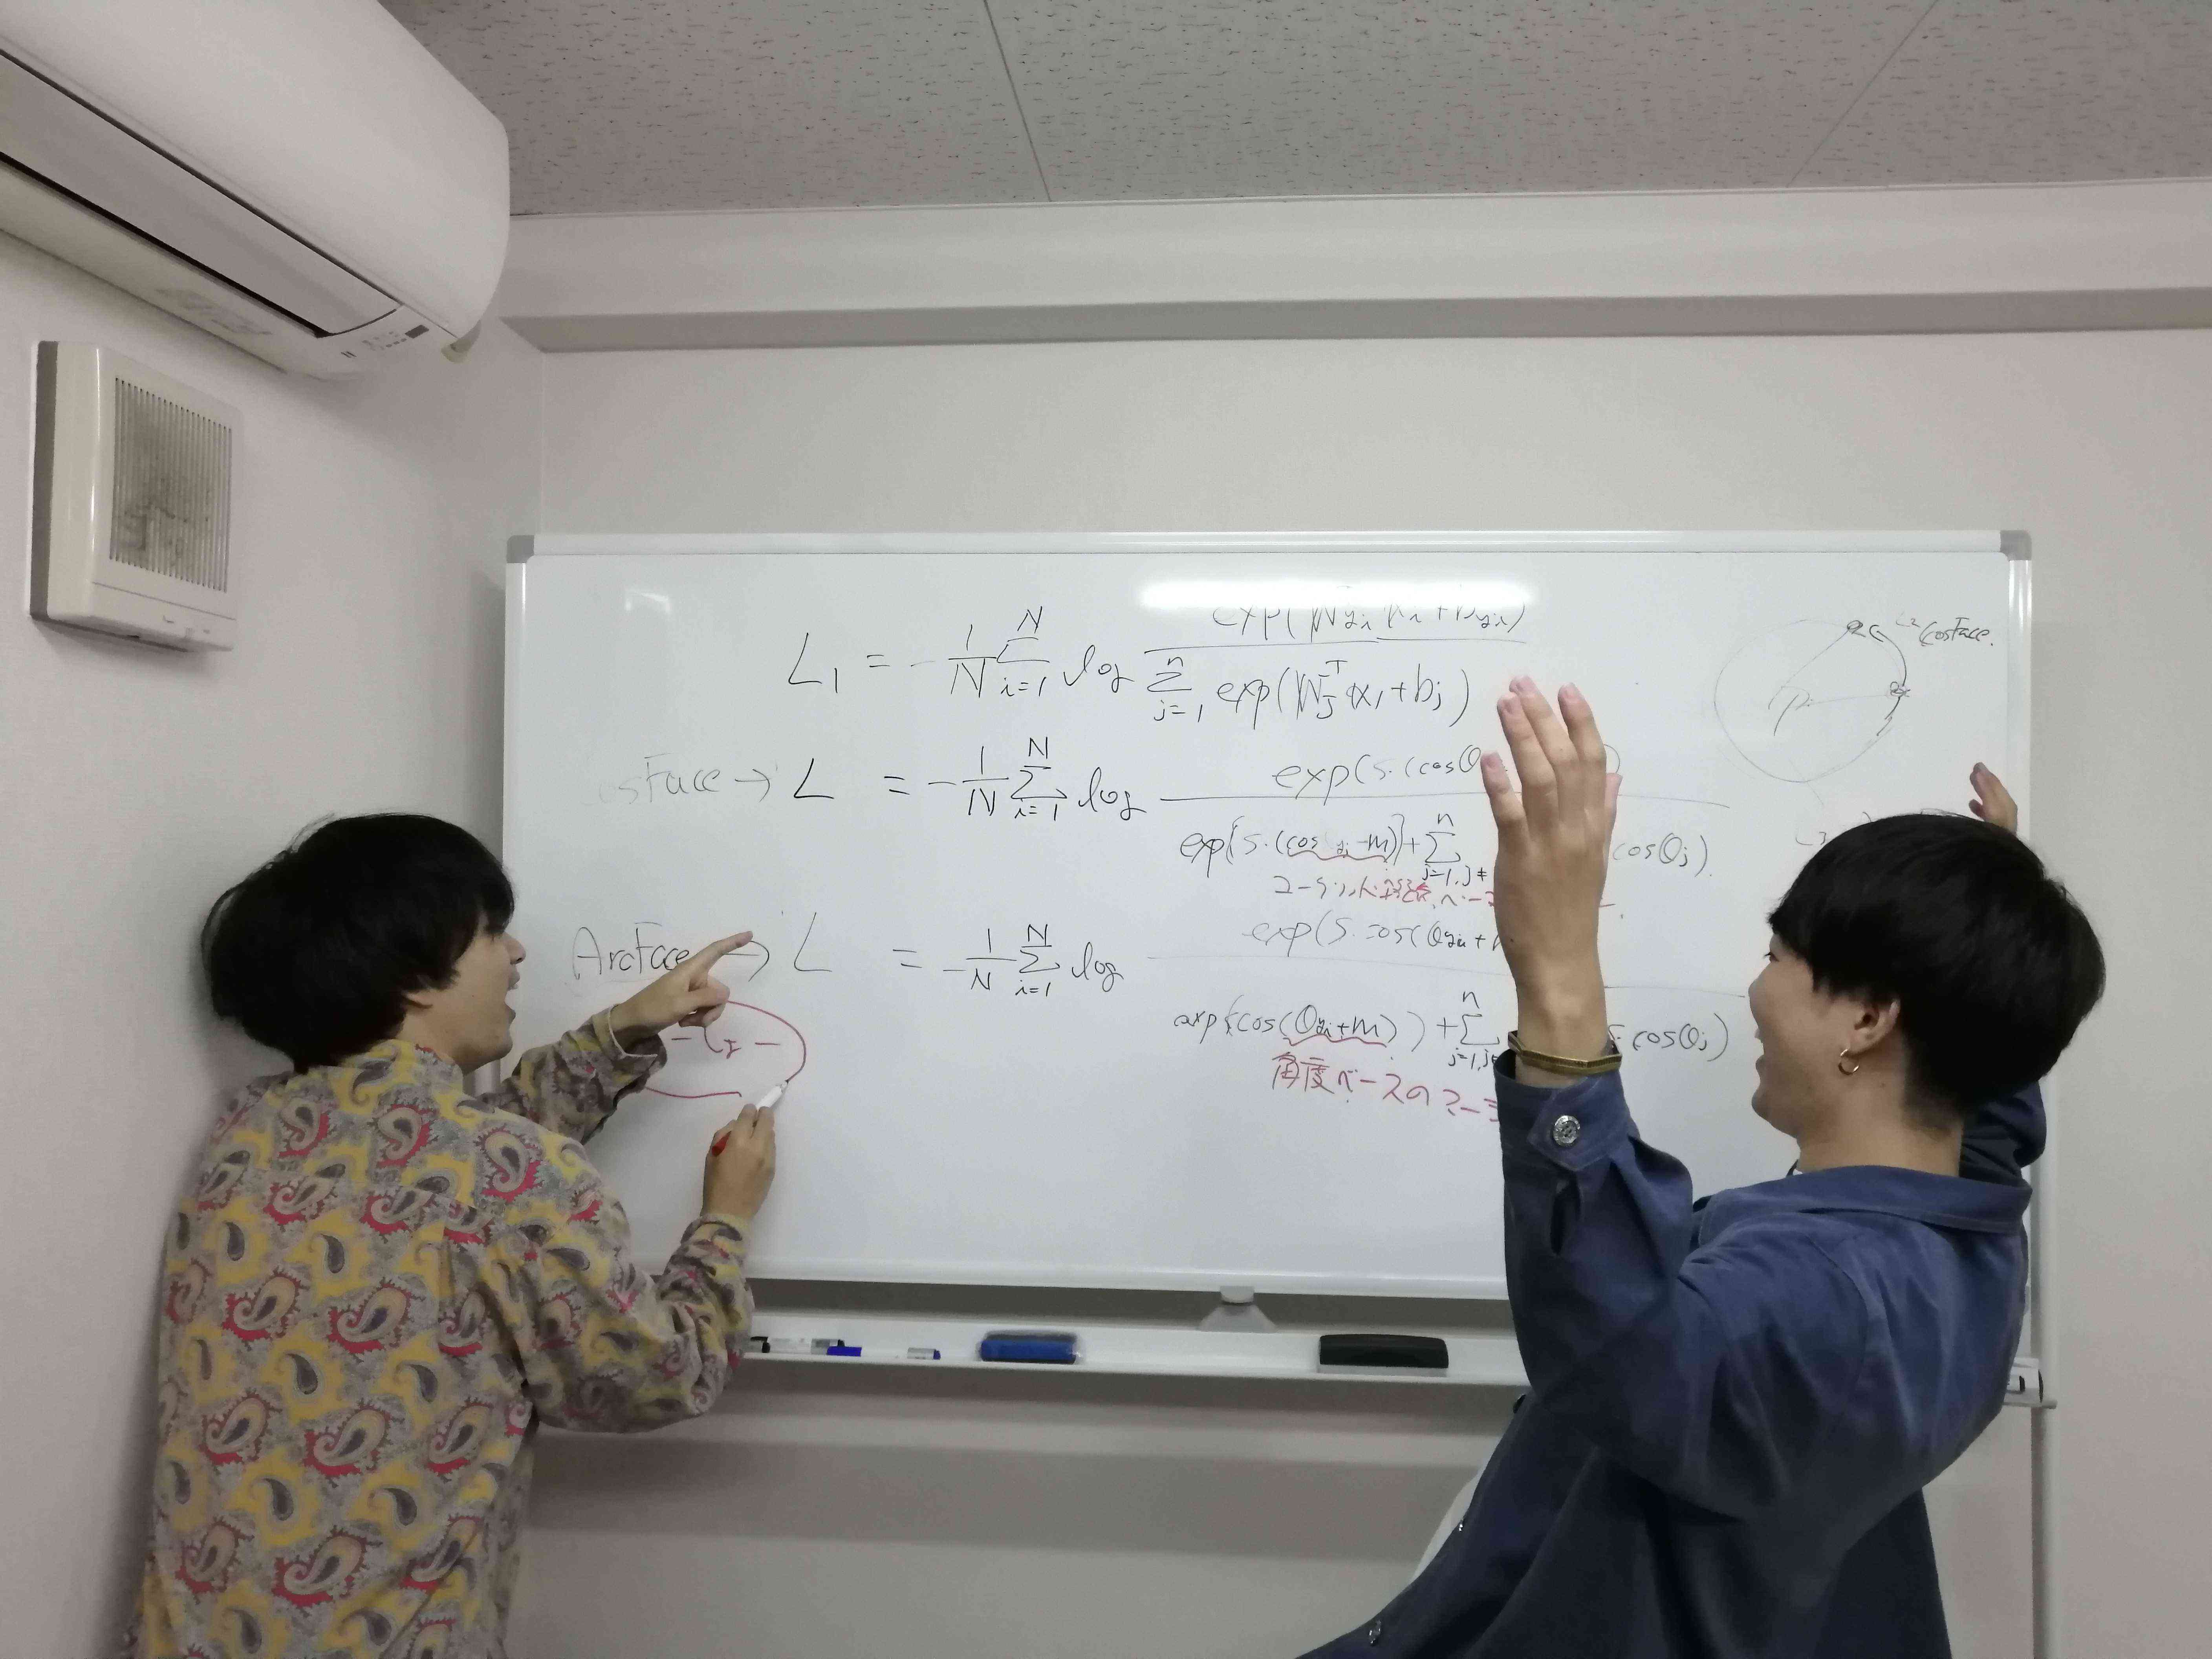 L₁ = - 1/N Σ i=1 N log exp(W yi xi + b yi) / Σ j=1 n exp(W j T x i + b j)
CosFace.
osFace → L = - 1/N Σ i=1 N log exp(s·(cosθ
exp{s·(cos yi -m)}+ Σ j=1,j≠ n cosθj).
ArcFace → L = - 1/N Σ i=1 N log exp(s·cos(θyi+
exp{cos(θyi+m)) + Σ j=1,j n s·cosθj)
角度ベースのマー